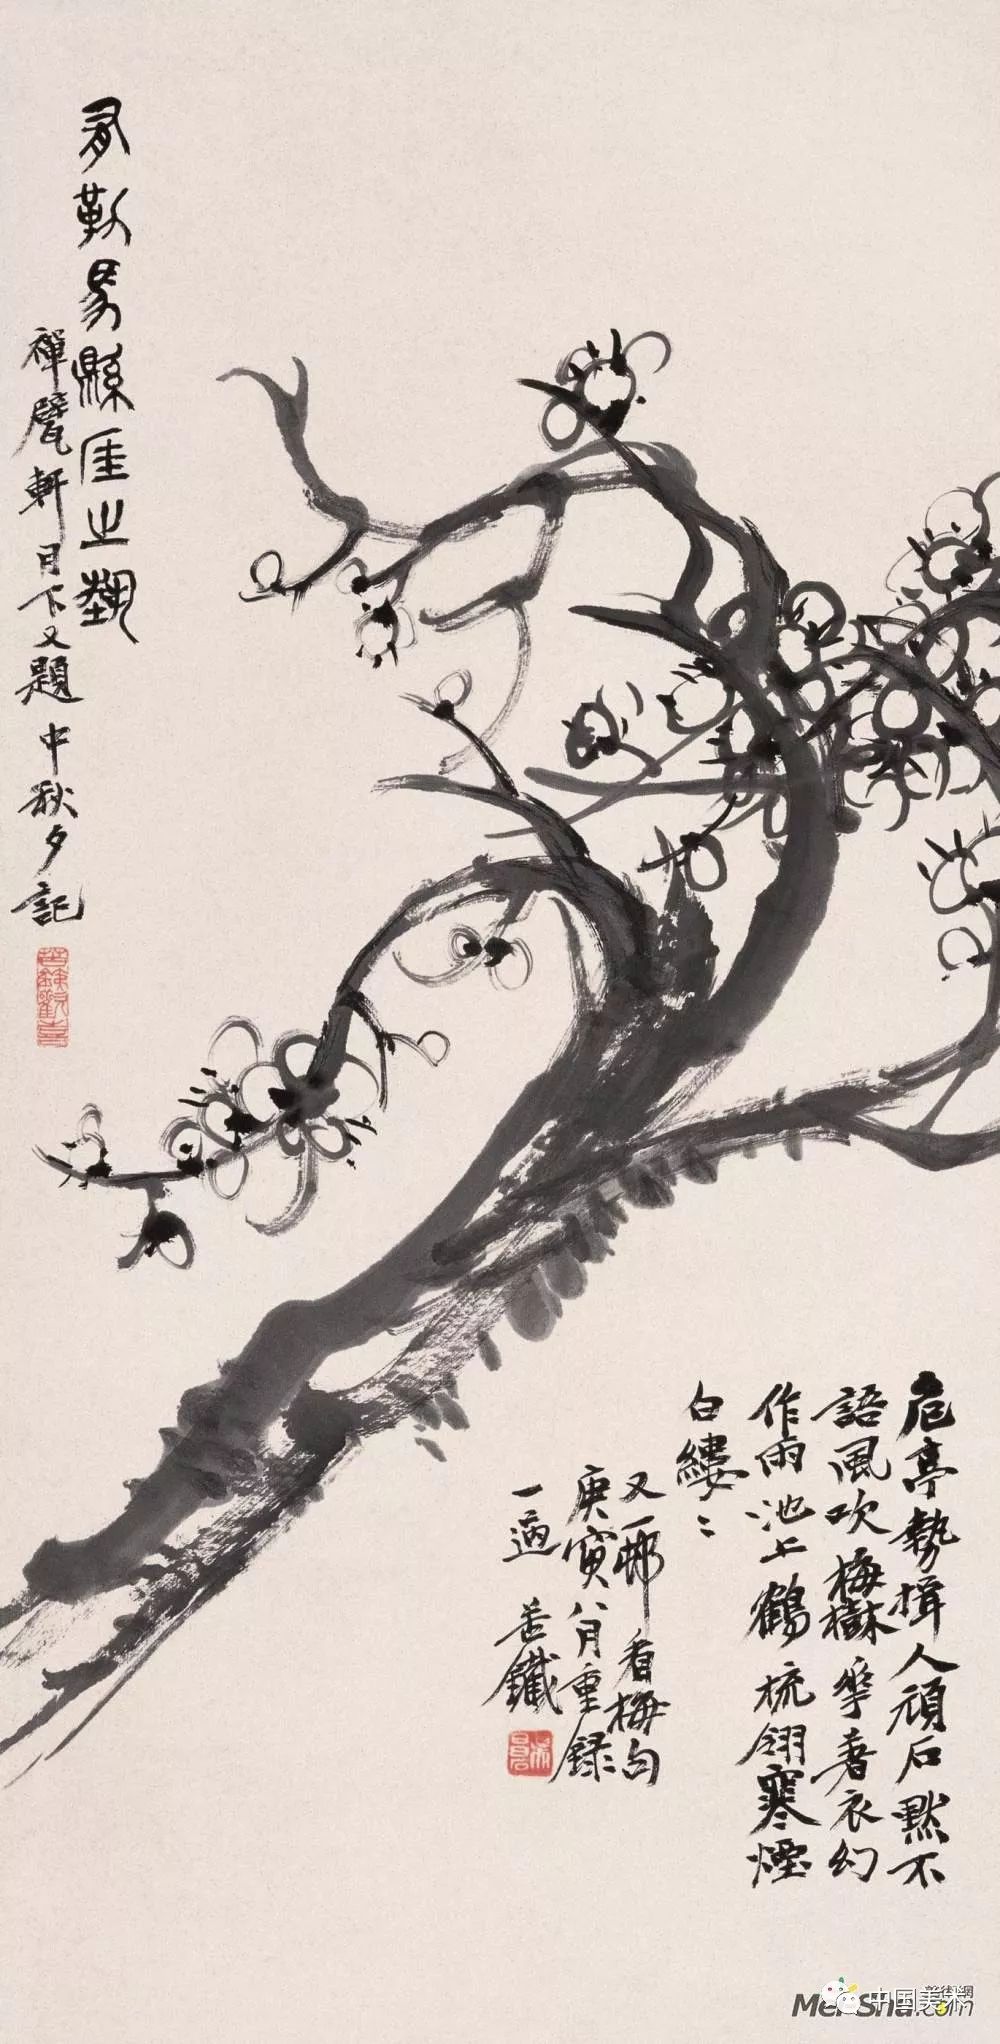 危亭勢揖人頑石默不
語風吹梅樹花著衣幻
作雨池上鶴梳翎寒煙
白縷〻
又一邨看梅句
庚寅八月重録
一過 苦鐵
縣厓之
禪甓軒月下又題 中秋夕記
中国美术
.com